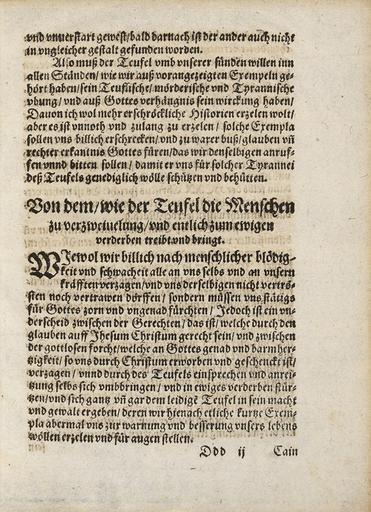 vnd vnuerstart gewest/bald darnach ist der ander auch nicht
in vngleicher gestalt gefunden worden.
Also muß der Teufel vmb vnserer sünden willen inn
allen Ständen/wie wir auß vorangezeigten Exempeln ge-
hört haben/sein Teuflische/mörderische vnd Tyrannische
vbung/vnd auß Gottes verhängnis sein wirckung haben/
Dauon ich wol mehr erschröckliche Historien erzelen wolt/
aber es ist vnnoth vnd zulang zu erzelen/solche Exempla
sollen vns billich erschrecken/vnd zu warer buß/glauben vñ
rechter erkantnis Gottes füren/das wir denselbigen anruf-
fen vnd bitten sollen/damit er vns für solcher Tyrannei
deß Teufels genediglich wölle schützen vnd behütten.
Von dem/wie der Teufel die Menschen
zu verzweiuelung/vnd entlich zum ewigen
verderben treibt vnd bringt.
WJewol wir billich nach menschlicher blödig-
keit vnd schwacheit alle an vns selbs vnd an vnsern
kräfften verzagen/vnd vns derselbigen nicht vertrö-
sten noch vertrawen dörffen/sondern müssen vns stätigs
für Gottes zorn vnd vngenad fürchten/Jedoch ist ein vn-
derscheid zwischen der Gerechten/das ist/welche durch den
glauben auff Jhesum Christum gerecht sein/vnd zwischen
der gottlosen forcht/welche an Gottes genad vnd barmher-
tzigkeit/so vns durch Christum erworben vnd geschenckt ist/
verzagen/vnnd durch des Teufels einsprechen vnd anrei-
tzung selbs sich vmbbringen/vnd in ewiges verderben stür-
tzen/vnd sich gantz vñ gar dem leidigē Teufel in sein macht
vnd gewalt ergeben/deren wir hienach etliche kurtze Exem-
pla abermal vns zur warnung vnd besserung vnsers lebens
wöllen erzelen vnd für augen stellen.
Ddd ij Cain